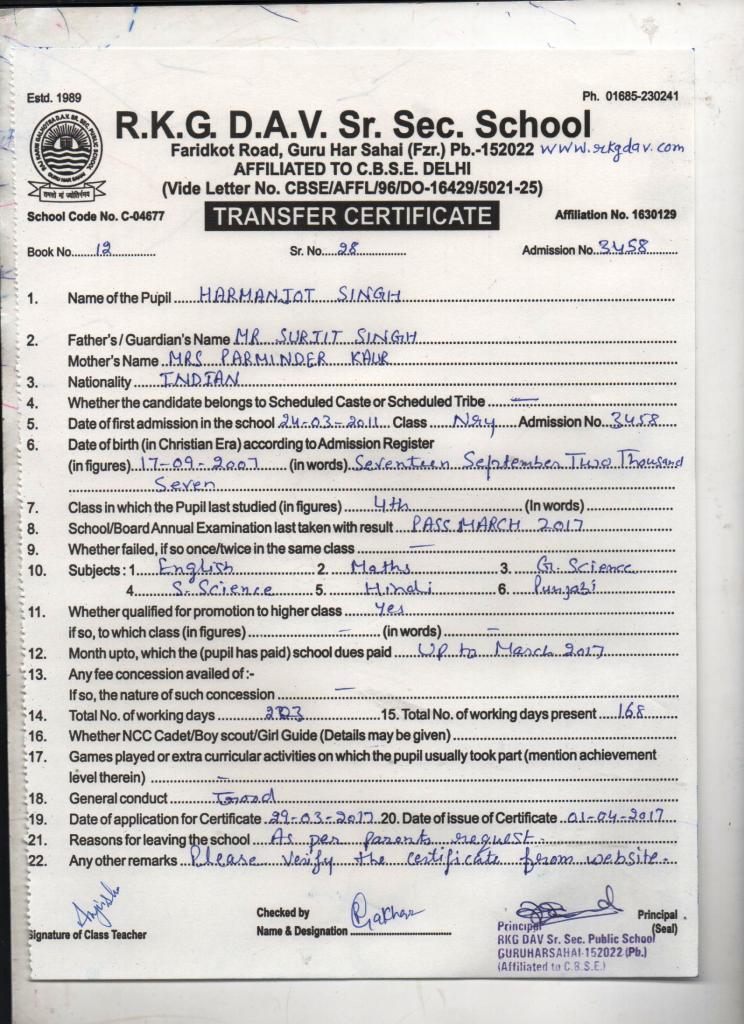 Estd. 1989
Ph. 01685-230241
R.K.G. D.A.V. Sr. Sec. School
Faridkot Road, Guru Har Sahai (Fzr.) Pb.-152022 www.rkgdav.com
AFFILIATED TO C.B.S.E. DELHI
(Vide Letter No. CBSE/AFFL/96/DO-16429/5021-25)
School Code No. C-04677 TRANSFER CERTIFICATE Affiliation No. 1630129
Book No. 12 Sr. No. 28 Admission No. 3458
1. Name of the Pupil HARMANJOT SINGH
2. Father's / Guardian's Name MR SURJIT SINGH
Mother's Name MRS PARMINDER KAUR
3. Nationality INDIAN
4. Whether the candidate belongs to Scheduled Caste or Scheduled Tribe —
5. Date of first admission in the school 24-03-2011 Class Nry Admission No. 3458
6. Date of birth (in Christian Era) according to Admission Register
(in figures) 17-09-2007 (in words) Seventeen September Two Thousand
Seven
7. Class in which the Pupil last studied (in figures) 4th (In words)
8. School/Board Annual Examination last taken with result PASS MARCH 2017
9. Whether failed, if so once/twice in the same class —
10. Subjects : 1. English 2. Maths 3. G. Science
4. S. Science 5. Hindi 6. Punjabi
11. Whether qualified for promotion to higher class Yes
if so, to which class (in figures) — (in words) —
12. Month upto, which the (pupil has paid) school dues paid Up to March 2017
13. Any fee concession availed of :-
If so, the nature of such concession —
14. Total No. of working days 203 15. Total No. of working days present 168
16. Whether NCC Cadet/Boy scout/Girl Guide (Details may be given)
17. Games played or extra curricular activities on which the pupil usually took part (mention achievement
level therein) —
18. General conduct Good
19. Date of application for Certificate 29-03-2017 20. Date of issue of Certificate 01-04-2017
21. Reasons for leaving the school As per parents request.
22. Any other remarks Please verify the certificate from website.
Signature of Class Teacher
Checked by
Name & Designation
Principal
(Seal)
Principal
RKG DAV Sr. Sec. Public School
GURUHARSAHAI-152022 (Pb.)
(Affiliated to C.B.S.E.)